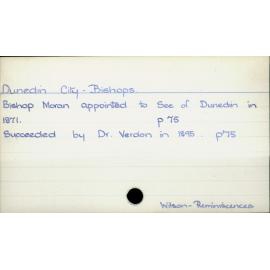 Dunedin City - Bishops
Bishop Moran appointed to See of Dunedin in
1871. p 75
Succeeded by Dr. Verdon in 1895. p75
Wilson - Reminiscences